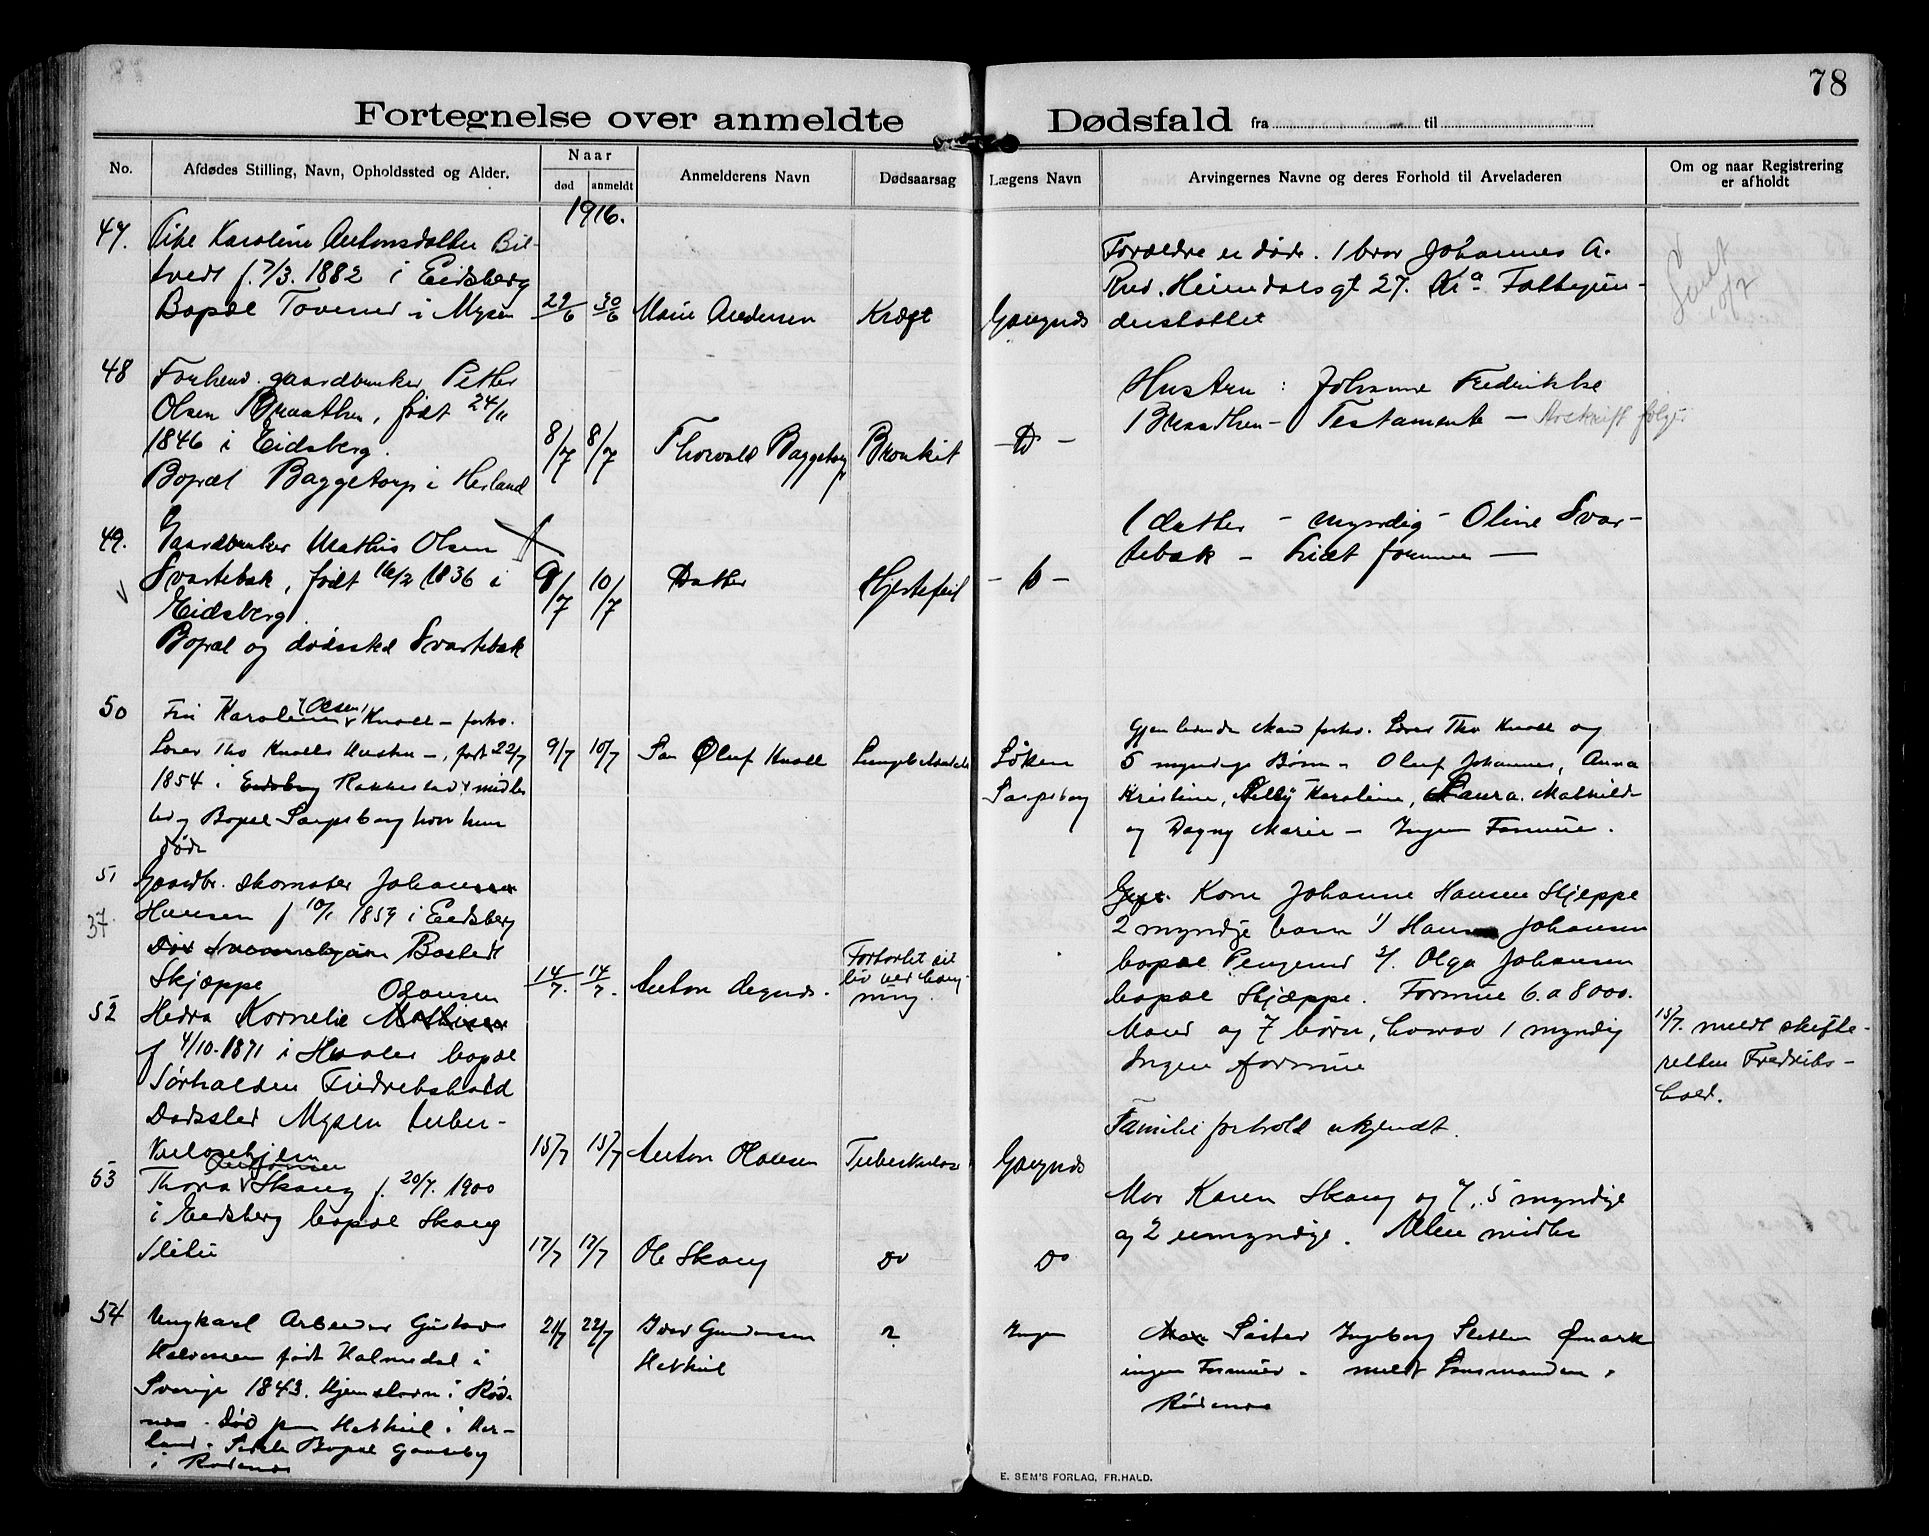 78
Fortegnelse over anmeldte Dødsfald fra til
No.
Afdødes Stilling, Navn, Opholdssted og Alder.
Naar
død
anmeldt
Anmelderens Navn
Dødsaarsag
Lægens Navn
Arvingernes Navne og deres Forhold til Arveladeren
Om og naar Registrering
er afholdt
1916.
47.
Pike Karoline Antonsdatter Bil-
tvedt f. 7/3. 1882 i Eidsberg
Bopæl Toverud i Mysen
29/6
30/6
Marie Andersen
Kræft
Forældre er døde. 1 bror Johannes A.
Rud. Heimdalsgt 27. Kra
48
Forhenv. gaardbruker Petter
Olsen Braathen, født 24/11
1846 i Eidsberg.
Bopæl Baggetorp i Herland
8/7
8/7
Thorvald Baggetorp
Bronkit
- D -
Hustru : Johanne Fredrikke
Braathen - Testamente - Avskrift følger
49.
Gaardbruker Mathis Olsen
Svartebæk, født 16/2 1836 i
Eidsberg
Bopæl og dødssted Svartebæk
9/7
10/7
Datter
Hjertefeil
1 datter - myndig - Oline Svar-
tebæk - Lidt formue -
50
Fru Karoline (Olsen) Knoll - forhv.
Lærer Ths Knolls Hustru -, født 22/7
1854 i Eidsberg Rakkestad
Bopæl Sarpsborg hvor hun
døde
9/7
10/7
Søn Oluf Knoll
Løken
Sarpsborg
Gjenlevende Mand forhv. Lærer Ths Knoll og
5 myndige Børn - Oluf Johannes, Anna
Kristine, Karoline, Laura Mathilde
og Dagny Marie - Ingen Formue.
51
37.
Gaardbr. skomaker Johan
Hansen f 10/1 1859 i Eidsberg
Bosted
Skjæppe
14/7.
14/7.
Anton
Forkortet sit
liv ved hæng-
ning.
Kone Johanne Hansen Skjeppe
2 myndige barn 1/ Hans Johansen
bopæl Pengerud 2/. Olga Johansen
bopæl Skjæppe. Formue 6. a 8000.
52
Hedra Kornelie Olausen
f 4/10. 1871 i Hvaler bopæl
Sørhalden Fredrikshald
Dødssted Mysen tuber-
kulosehjem
15/7
15/7
Anton Olausen
Tuberkulose
Mand og 7 børn, hvorav 1 myndig
Ingen formue
Familieforhold ukjendt.
15/7. meldt skifte-
retten Fredriks-
hald.
53
Thora Skaug f. 20/7. 1900
i Eidsberg bopæl Skaug
Slitu
17/7
17/7
Ole Skaug
Do
Do
Mor Karen Skaug og 7, 5 myndige
og 2 umyndige. Uten midler
54
Ungkarl Arbeider Gustav
Halvorsen født Holmedal i
Sverige 1843. Hjemstavn i Rød-
nes. Død paa Hetkul i Her-
land. Sidste Bopæl
i Rødenes
21/7
22/7
Gundersen
?
Ingen
Søster Ingeborg Sletten Ømark
ingen Formue - meldt Lensmanden i
Rødenes
E. SEM'S FORLAG, FR.HALD.